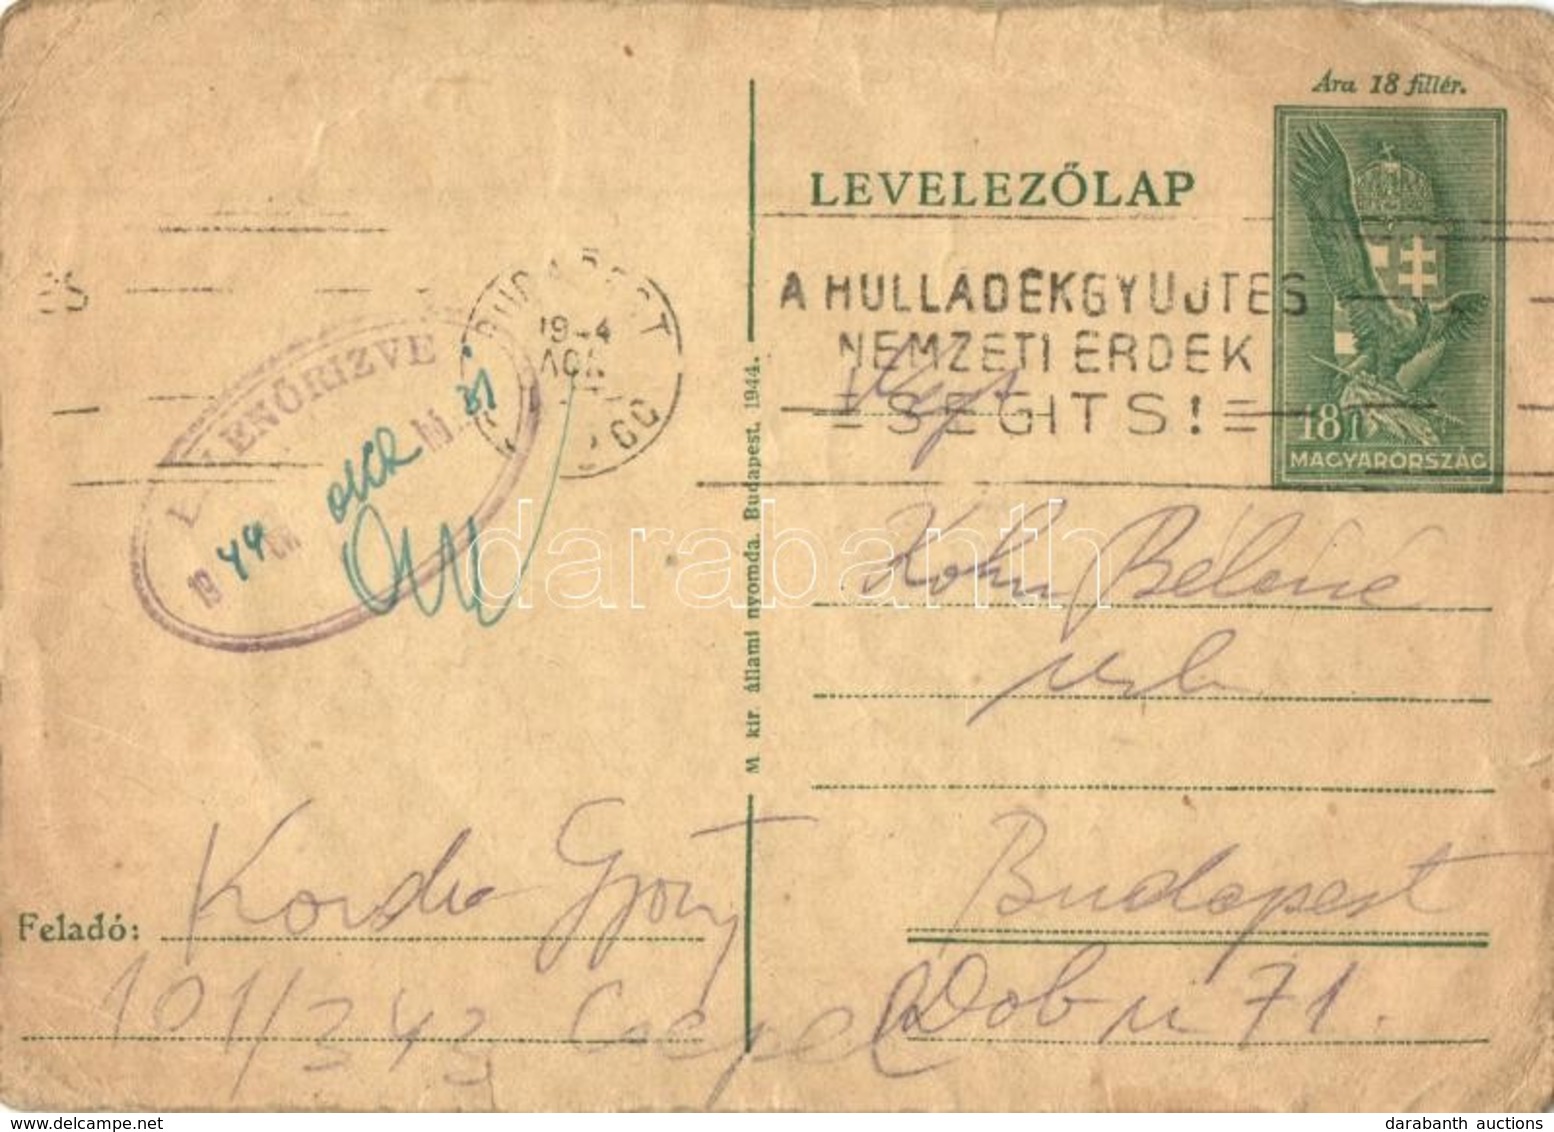 Ára 18 fillér.
LEVELEZŐLAP
A HULLADÉKGYUJTÉS
NEMZETI ÉRDEK
SEGITS!
18 f
MAGYARORSZÁG
BUDAPEST
1944
ELLENŐRIZVE
1944 okt 31
Kohn Béláné
Budapest
Dob u 71.
Feladó: Korda György
101/343 Csepel
M. kir. állami nyomda. Budapest. 1944.
darabanth
darabanth auctions
www.delcampe.net